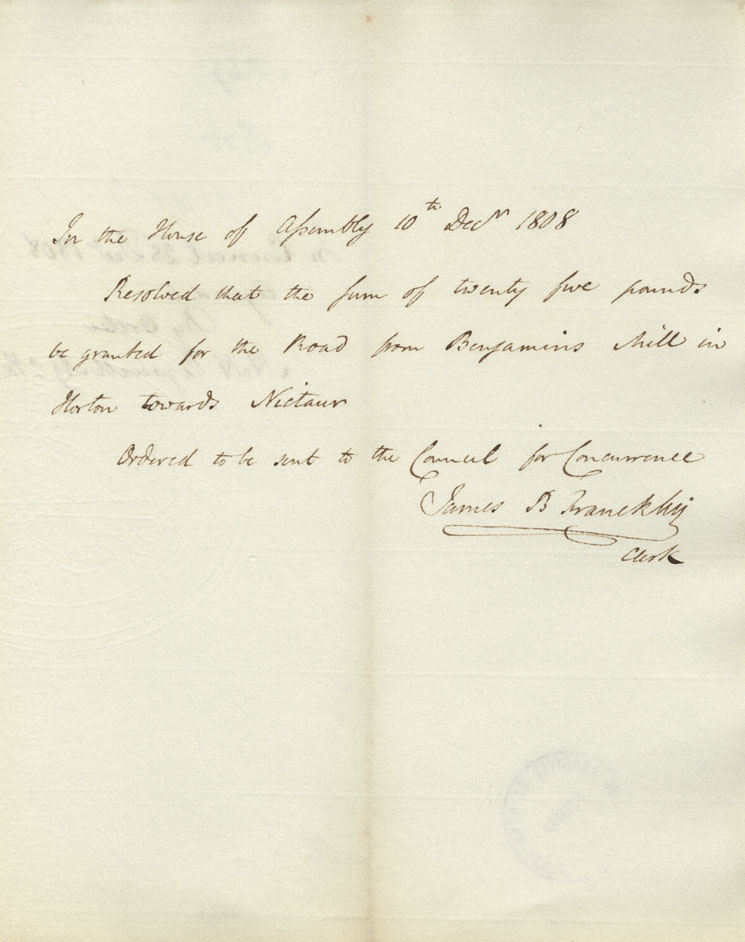 In the House of Assembly 10th Decr 1808
Resolved that the sum of twenty five pounds
be granted for the Road from Benjamins Mill in
Horton towards Nictaux
Ordered to be sent to the Council for Concurrence
James B Franckliy
Clerk